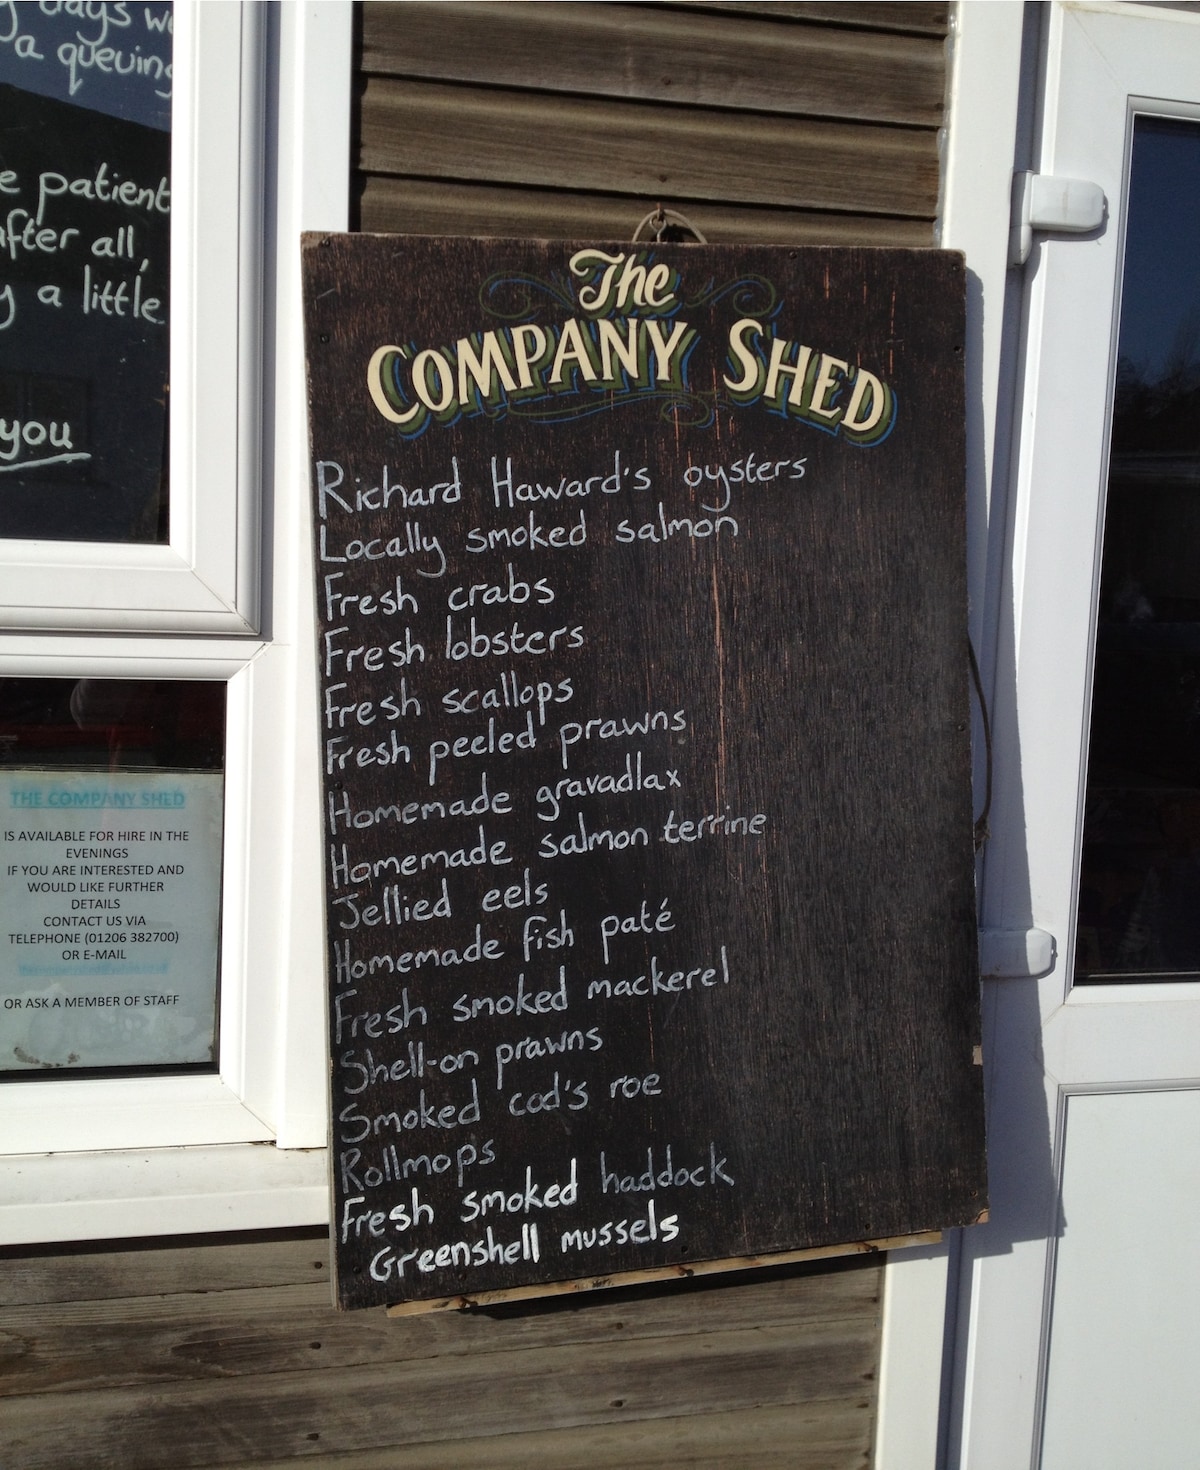 days we
a queuing
e patient
after all,
y a little
you
The
COMPANY SHED
Richard Haward's oysters
Locally smoked salmon
Fresh crabs
Fresh lobsters
Fresh scallops
Fresh peeled prawns
Homemade gravadlax
Homemade salmon terrine
Jellied eels
Homemade fish paté
Fresh smoked mackerel
Shell-on prawns
Smoked cod's roe
Rollmops
Fresh smoked haddock
Greenshell mussels
THE COMPANY SHED
IS AVAILABLE FOR HIRE IN THE
EVENINGS
IF YOU ARE INTERESTED AND
WOULD LIKE FURTHER
DETAILS
CONTACT US VIA
TELEPHONE (01206 382700)
OR E-MAIL
OR ASK A MEMBER OF STAFF